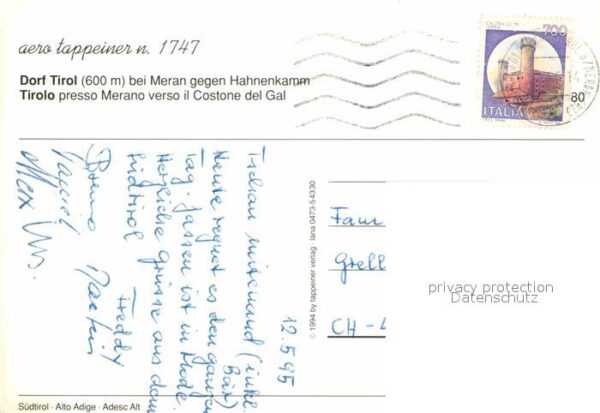 aero tappeiner n. 1747
Dorf Tirol (600 m) bei Meran gegen Hahnenkamm
Tirolo presso Merano verso il Costone del Gal
700
80
ITALIA
12.5.95
Tschau mitenand (inkl.
Bär)
Heute regnet es den ganzen
Tag. Jassen ist in Mode.
Herzliche Grüsse aus dem
Südtirol
Freddy
Bruno Martin
Max Urs.
© 1994 by tappeiner verlag · lana 0473-54330
Fam
Grell
CH-
privacy protection
Datenschutz
Südtirol · Alto Adige · Adesc Alt